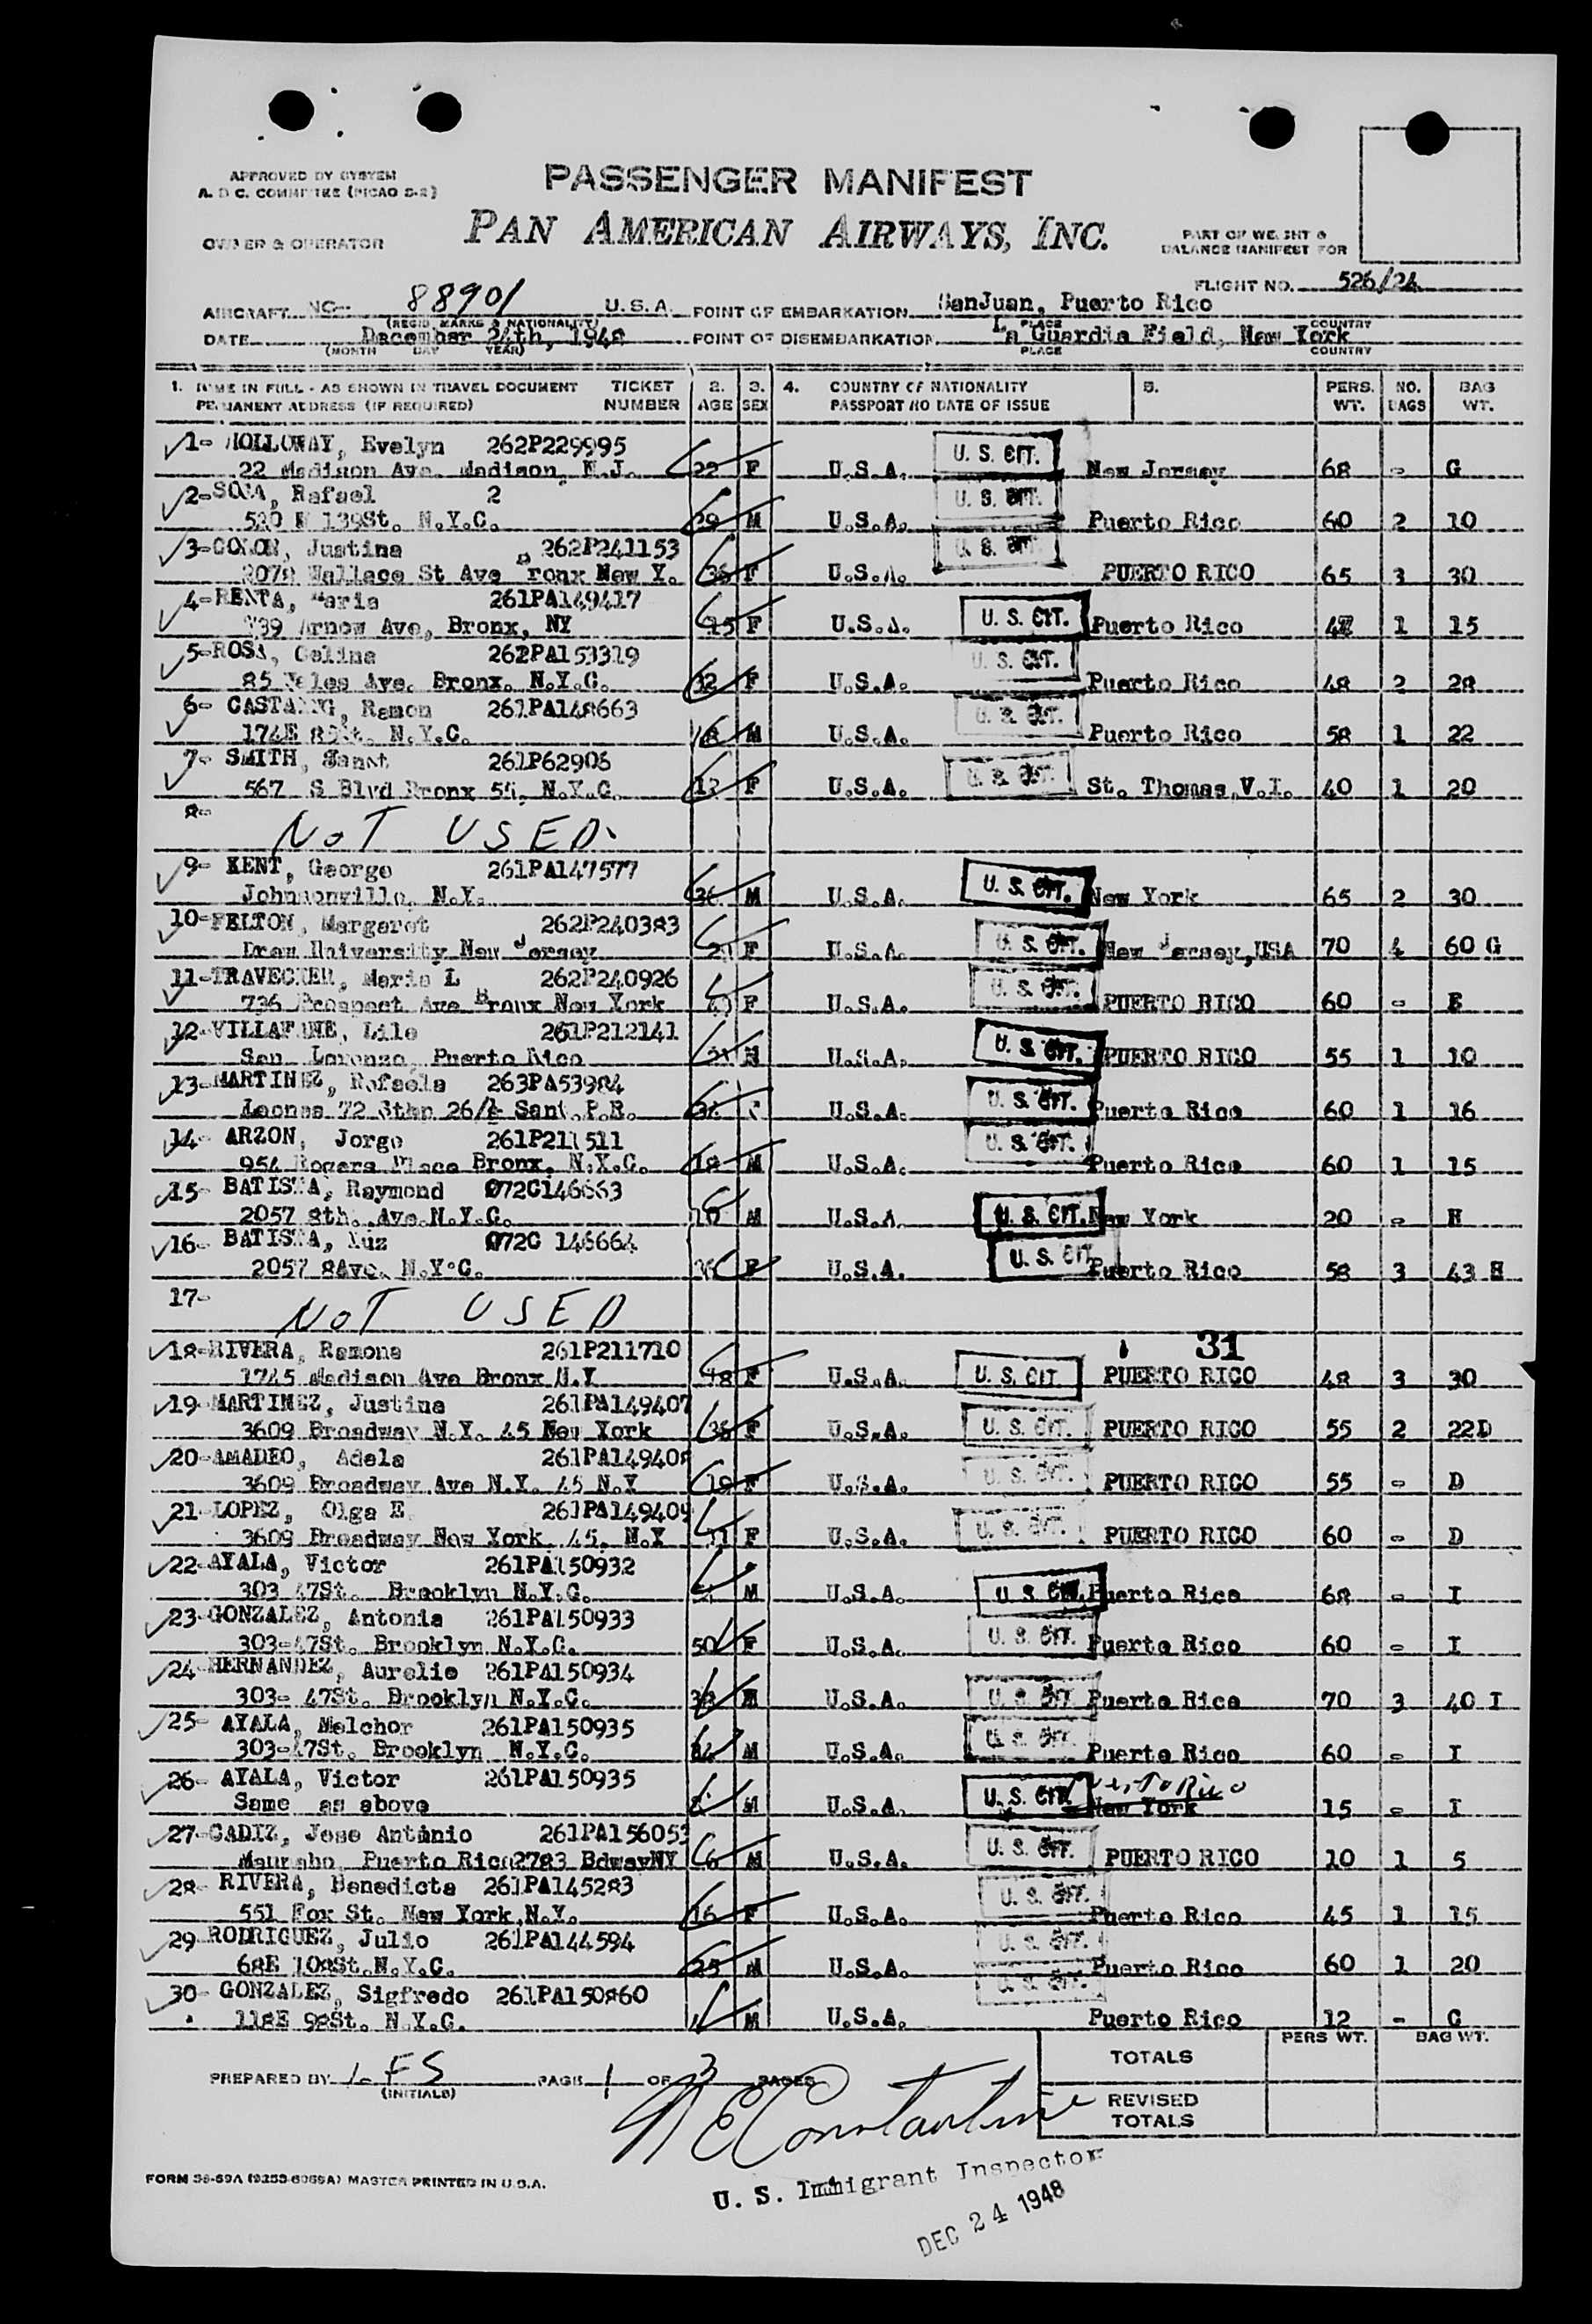 APPROVED BY SYSTEM
A. D C. COMMITTEE (PICAO S-2)
PASSENGER MANIFEST
OWNER & OPERATOR
PAN AMERICAN AIRWAYS, INC.
PART OF WEIGHT &
BALANCE MANIFEST FOR
FLIGHT NO. 526/24
AIRCRAFT NC 88901 U.S.A. POINT OF EMBARKATION SanJuan, Puerto Rico
(REGIS. MARKS & NATIONALITY) PLACE COUNTRY
DATE December 24th, 1948 POINT OF DISEMBARKATION La Guardia Field, New York
(MONTH DAY YEAR) PLACE COUNTRY
1. NAME IN FULL - AS SHOWN IN TRAVEL DOCUMENT TICKET 2. 3. 4. COUNTRY OF NATIONALITY 5. PERS. NO. BAG
PERMANENT ADDRESS (IF REQUIRED) NUMBER AGE SEX PASSPORT NO DATE OF ISSUE WT. BAGS WT.
1- HOLLOWAY, Evelyn 262P229995 U. S. CIT.
22 Madison Ave. Madison, N.J. 22 F U.S.A. New Jersey 68 - G
2- SOSA, Rafael 2 U. S. CIT.
520 E 139St. N.Y.C. 29 M U.S.A. Puerto Rico 60 2 10
3- COLON, Justina 262P241153 U. S. CIT.
2078 Wallace St Ave Bronx New Y. 36 F U.S.A. PUERTO RICO 65 3 30
4- RENTA, Maria 261PA149417 U. S. CIT.
739 Arnow Ave, Bronx, NY 15 F U.S.A. Puerto Rico 1 15
5- ROSA, Celina 262PA153319 U. S. CIT.
85 Ave. Bronx. N.Y.C. 32 F U.S.A. Puerto Rico 48 2 28
6- Ramon 261PA148663 U. S. CIT.
174E N.Y.C. 18 M U.S.A. Puerto Rico 58 1 22
7- SMITH, 261P62906 U. S. CIT.
567 S Blvd Bronx 55, N.Y.C. 12 F U.S.A. St. Thomas, V.I. 40 1 20
8-
NOT USED.
9- KENT, George 261PA147577 U. S. CIT.
Johnsonville, N.Y. 36 M U.S.A. New York 65 2 30
10- FELTON, Margaret 262P240383 U. S. CIT.
Drew University New Jersey F U.S.A. New Jersey,USA 70 4 60 G
11- Maria L 262P240926 U. S. CIT.
736 Prospect Ave Bronx New York F U.S.A. PUERTO RICO 60 - E
12- VILLAFANE, Lilo 261P212141 U. S. CIT.
San Lorenzo, Puerto Rico M U.S.A. PUERTO RICO 55 1 10
13- MARTINEZ, Rafaela 263PA53984 U. S. CIT.
72 26/2 Sant. P.R. U.S.A. Puerto Rico 60 1 16
14- ARZON, Jorge 261P211511 U. S. CIT.
954 Rogers Place Bronx. N.Y.C. 18 M U.S.A. Puerto Rico 60 1 15
15- BATISTA, Raymond 072C146663
2057 8th. Ave.N.Y.C. 10 M U.S.A. U. S. CIT. New York 20 - H
16- BATISTA, 072C 146664 U. S. CIT.
2057 8Ave. N.Y.C. F U.S.A. Puerto Rico 58 3 43 H
17-
NOT USED
18- RIVERA, Ramona 261P211710 31
1745 Madison Ave Bronx N.Y 48 F U.S.A. U. S. CIT. PUERTO RICO 48 3 30
19- MARTINEZ, Justina 261PA149407
3609 Broadway N.Y. 45 New York 36 F U.S.A. U. S. CIT. PUERTO RICO 55 2 22D
20- AMADEO, Adela 261PA149408
3609 Broadway Ave N.Y. 45 N.Y 19 F U.S.A. U. S. CIT. PUERTO RICO 55 - D
21- LOPEZ, Olga E. 261PA149409
3609 Broadway New York. 45. N.Y 11 F U.S.A. U. S. CIT. PUERTO RICO 60 - D
22- AYALA, Victor 261PA150932
303 47St. Brooklyn N.Y.C. M U.S.A. U. S. CIT. Puerto Rico 68 - I
23- GONZALEZ, Antonia 261PA150933
303-47St. Brooklyn N.Y.C. 50 F U.S.A. U. S. CIT. Puerto Rico 60 - I
24- HERNANDEZ, Aurelio 261PA150934
303- 47St. Brooklyn N.Y.C. 33 M U.S.A. U. S. CIT. Puerto Rico 70 3 40 I
25- AYALA, Melchor 261PA150935 U. S. CIT.
303-47St. Brooklyn N.Y.C. M U.S.A. Puerto Rico 60 - I
26- AYALA, Victor 261PA150935 U. S. CIT. Puerto Rico
Same as above M U.S.A. New York 15 - I
27- CADIZ, Jose Antonio 261PA156053 U. S. CIT.
Maunabo, Puerto Rico2783 BdwayNY 6 M U.S.A. PUERTO RICO 10 1 5
28- RIVERA, Benedicta 261PA145283 U. S. CIT.
551 Fox St. New York,N.Y. 16 F U.S.A. Puerto Rico 45 1 15
29 RODRIGUEZ, Julio 261PA144594 U. S. CIT.
68E 108St.N.Y.C. 25 M U.S.A. Puerto Rico 60 1 20
30- GONZALEZ, Sigfredo 261PA150860 U. S. CIT.
118E 98St. N.Y.C. M U.S.A. Puerto Rico 12 - C
TOTALS PERS WT. BAG WT.
PREPARED BY FS PAGE 1 OF 3 PAGES
(INITIALS)
REVISED
TOTALS
N E Constantine
FORM MASTER PRINTED IN U.S.A.
U. S. Immigrant Inspector
DEC 24 1948